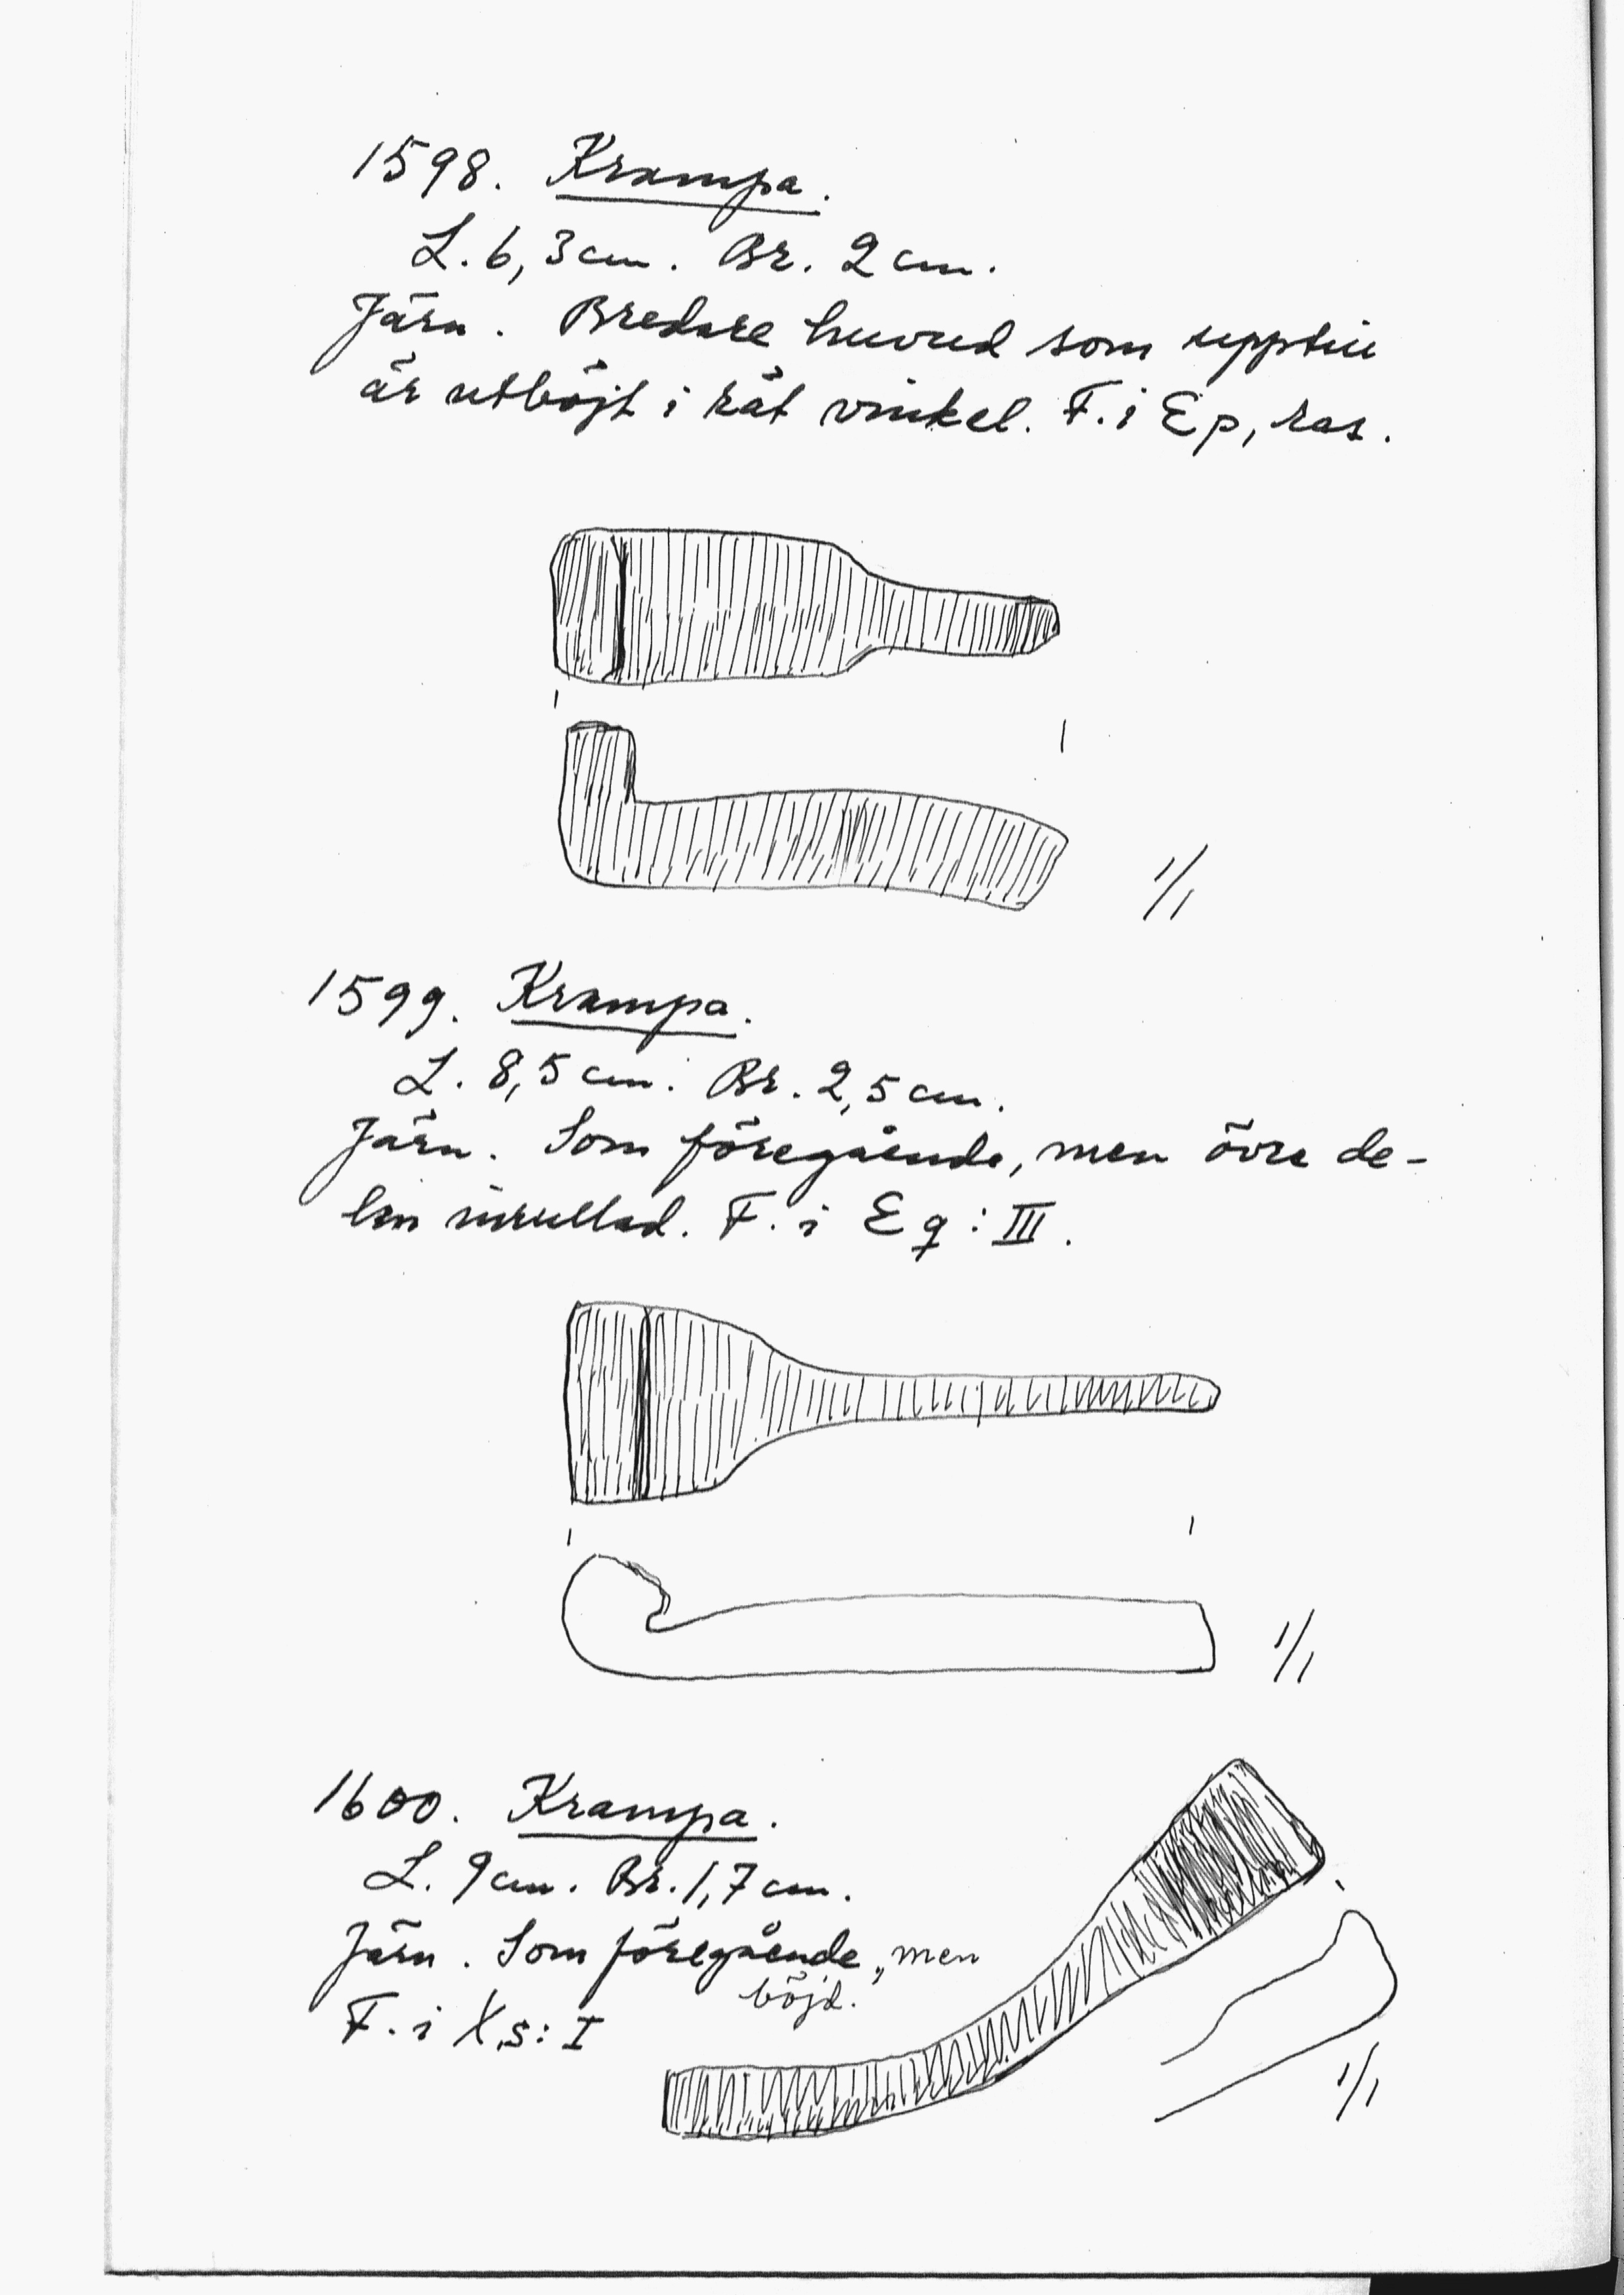 1598. Krampa.
L. 6,3 cm. Br. 2 cm.
Järn. Bredare huvud som upptill
är utböjt i rät vinkel. F. i Ep, ras.
1/1
1599. Krampa.
L. 8,5 cm. Br. 2,5 cm.
Järn. Som föregående, men övre de-
len inrullad. F. i Eq: III.
1/1
1600. Krampa.
L. 9 cm. Br. 1,7 cm.
Järn. Som föregående, men
böjd.
F. i Xs: I
1/1